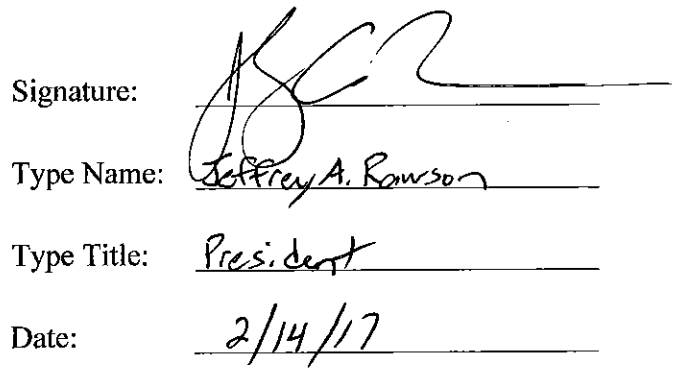 Signature:
Type Name: Jeffrey A. Rawson
Type Title: President
Date: 2/14/17